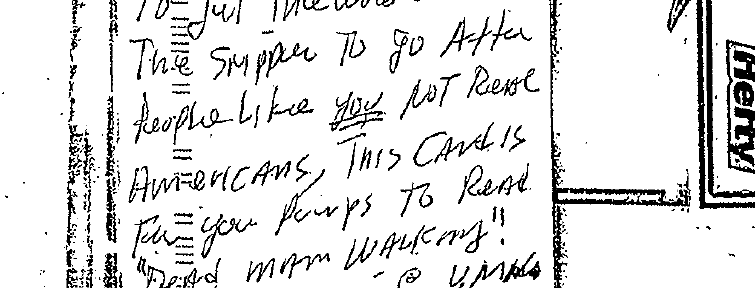 To
The Snipper To go After
People Like you NOT Real
Americans, This Card is
For you Pumps To Read
"Dead man Walking"!
Herty